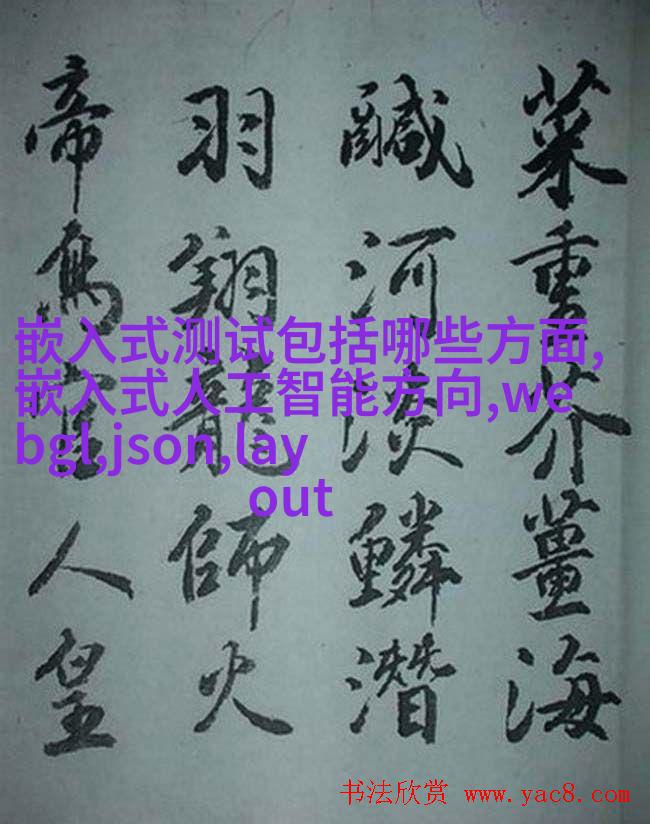 菜重芥薑海
鹹河淡鱗潛
羽翔龍師火
帝鳥官人皇
嵌入式测试包括哪些方面,
嵌入式人工智能方向,we
bgl,json,lay
out
书法欣赏 www.yac8.com